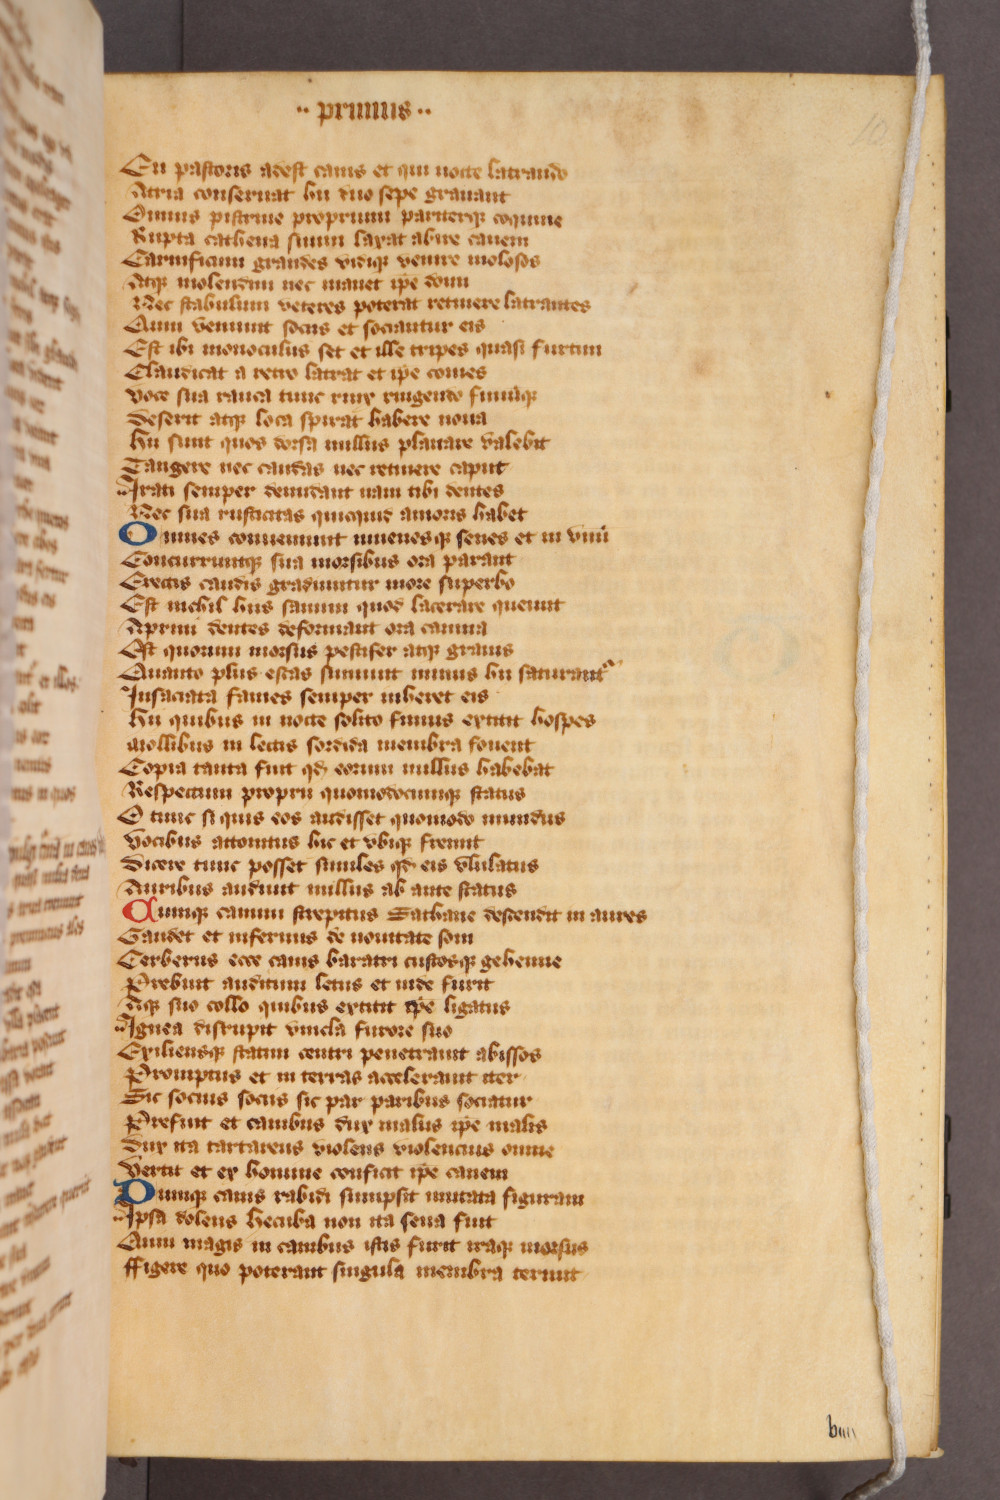 ·· primus ··
10
En pastoris adest canis et qui nocte latrando
Atria conseruat hii duo sepe grauant
Omnis pistrine proprium pariterqꝫ coquine
Rupta cathena suum laxat abire canem
Carnificum grandes vidiqꝫ venire molosos
Atqꝫ molendini nec manet ip̄e domi
Nec stabulum veteres poterat retinere latrantes
Quin veniunt sociis et sociantur eis
Est ibi monoculus set et ille tripes quasi furtim
Claudicat a retro latrat et ip̄e comes
Voce sua rauca tunc rixs ringendo fimūqꝫ
Deserit atqꝫ loca spirat habere noua
Hii sunt quos dorsa nullus planare valebit
Tangere nec caudas nec retinere caput
Irati semper denudant nam tibi dentes
Nec sua rusticitas quicquid amoris habet
Omnes conueniunt iuuenesqꝫ senes et in vnū
Concurruntqꝫ sua morsibus ora parant
Erectis caudis gradiuntur more superbo
Est nichil hiis sanum quod lacerare queunt
Aprini dentes deformant ora canina
Est quorum morsus pestifer atqꝫ grauis
Quanto plus escas sumunt minus hii saturant᷑
Insaciata fames semper inheret eis
Hii quibus in nocte solito fimus extitit hospes
Mollibus in lectis sordida membra fouent
Copia tanta fuit qd eorum nullus habebat
Respectum proprii quomodocumqꝫ status
O tunc si quis eos audisset quomodo mundus
Vocibus attonitus hic et vbiqꝫ fremit
Dicere tunc posset similes qd eis vlulatus
Auribus audiuit nullus ab ante status
Cumqꝫ canum strepitus Sathane descendit in aures
Gaudet et infernus de nouitate soni
Cerberus ecce canis baratri custosqꝫ gehenne
Prebuit auditum letus et inde furit
Atqꝫ suo collo quibus extitit ip̄e ligatus
Ignea disrupit vincla furore suo
Exiliensqꝫ statim centri penetrauit abissos
Promptus et in terras accelerauit iter
Sic socius sociis sic par paribus sociatur
Prefuit et canibus dux malus ip̄e malis
Dux ita tartareus violens violencius omne
Vertit et ex homine conficit ip̄e canem
Cumqꝫ canis rabidi sumpsit mutata figuram
Ipsa dolens Hecuba non ita seua fuit
Quin magis in canibus istis furit iraqꝫ morsus
Figere quo poterant singula membra terunt
biiii